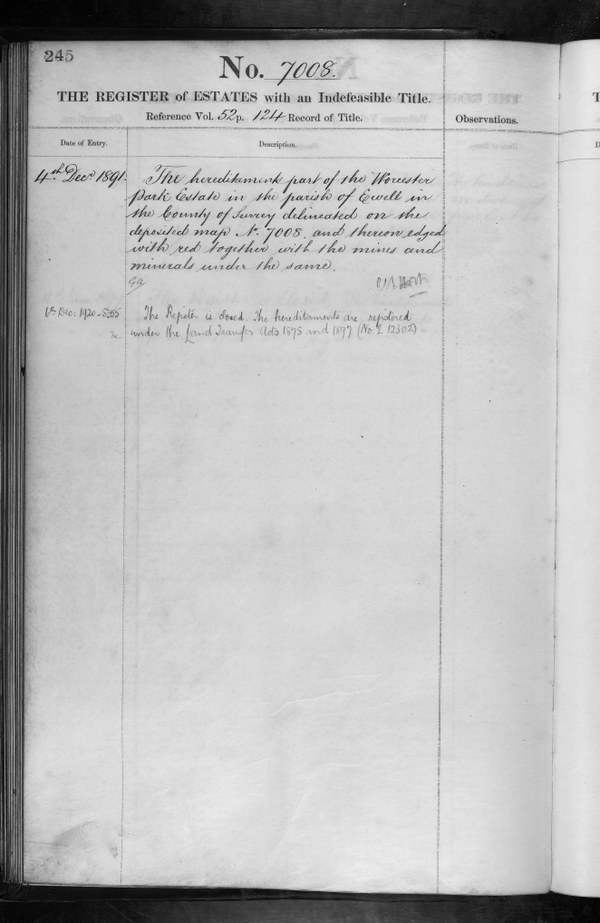 245
No. 7008.
THE REGISTER of ESTATES with an Indefeasible Title.
Reference Vol. 52 p. 124 Record of Title.
Observations.
Date of Entry.
Description.
4th Decr. 1891.
The hereditament part of the Worcester
Park Estate in the parish of Ewell in
the County of Surrey delineated on the
deposited map No. 7008. and thereon edged
with red together with the mines and
minerals under the same.
Dec. 1920
The Register is closed. The hereditaments are registered
under the Land Transfer Acts 1875 and 1897